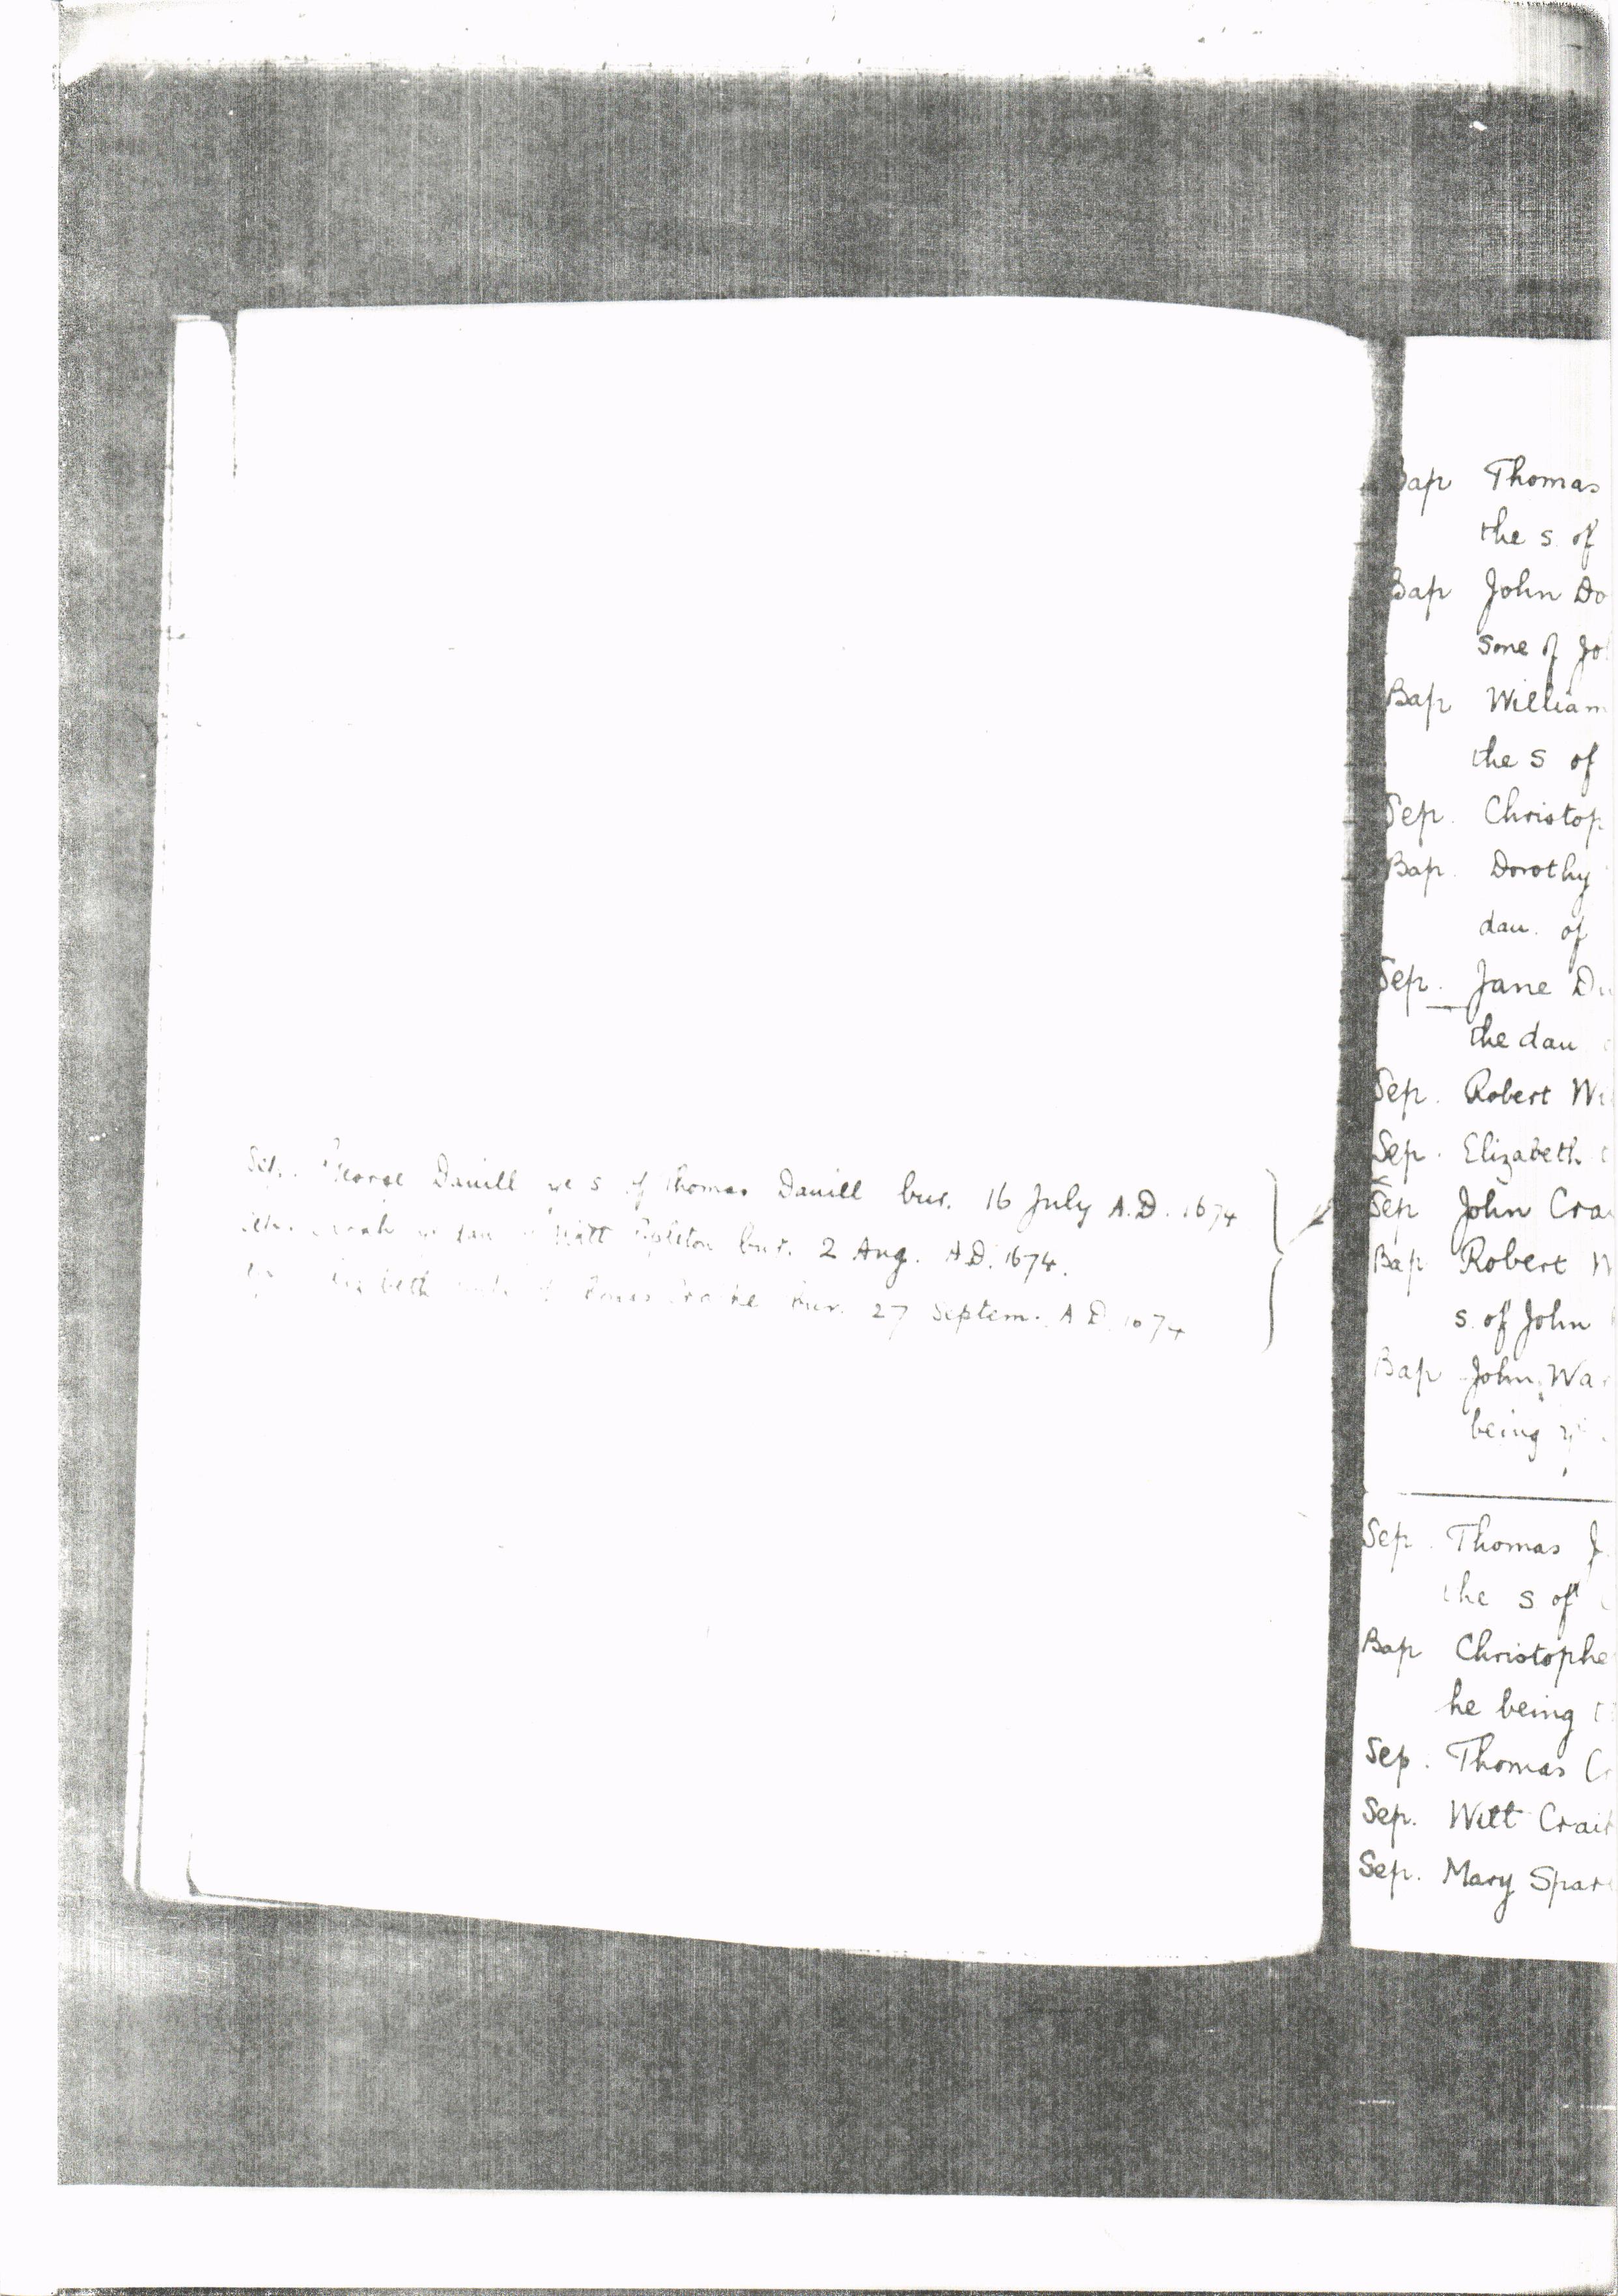 Sep. George Davill ye s of Thomas Davill bur. 16 July A.D. 1674
dau Witt bur. 2 Aug. A.D. 1674.
bur. 27 Septem. A D 1674
Bap Thomas
the s. of
Bap John Do
sone of Jo
Bap William
the s of
Sep. Christop
Bap. Dorothy
dau. of
Sep. Jane Du
the dau
Sep. Robert Wi
Sep. Elizabeth
Sep John Cra
Bap Robert
s. of John
Bap John Wa
being
Sep. Thomas J
the s of
Bap Christophe
he being
Sep. Thomas C
Sep. Witt Crai
Sep. Mary Spar